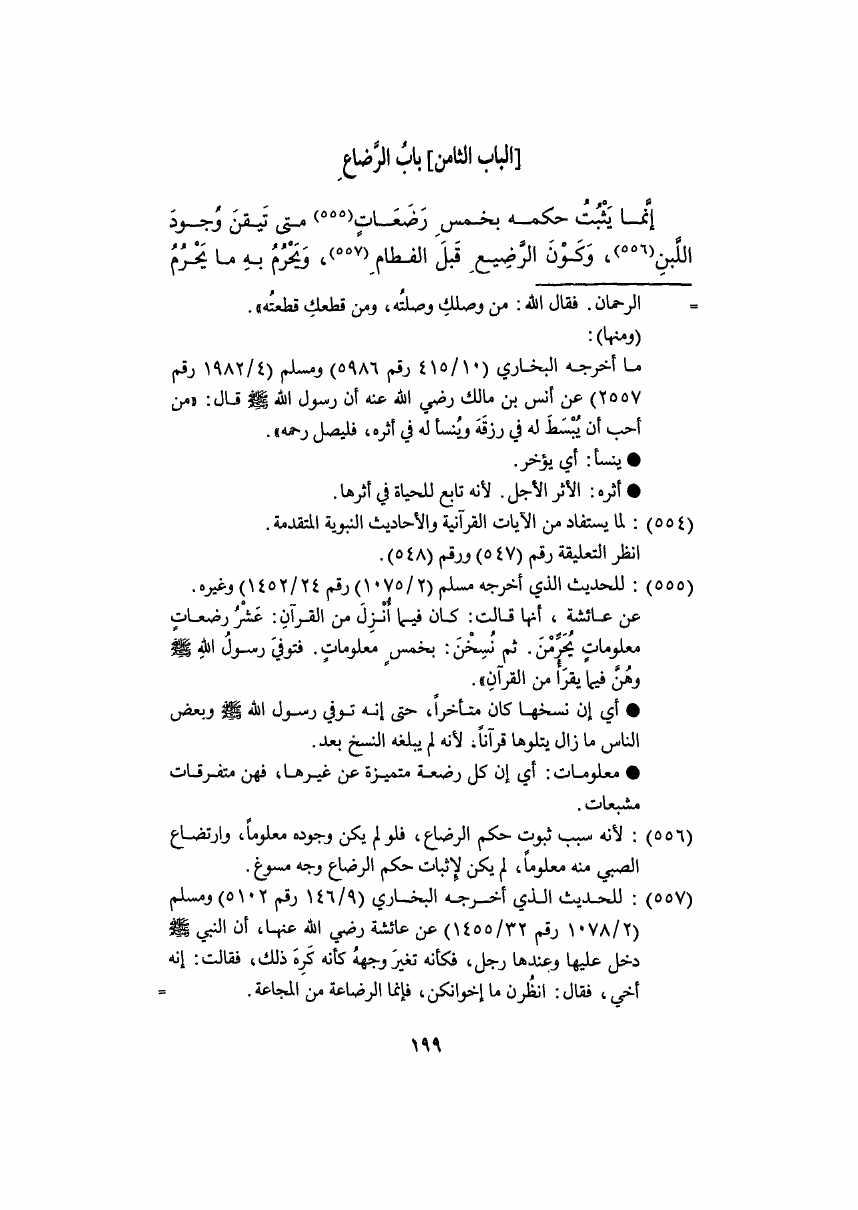 [الباب الثامن] بابُ الرَّضاعِ
إنَّمـا يَثْبُتُ حكمـه بخمـسِ رَضَعَـاتٍ(٥٥٥) متـى تَيـقنَ وُجـودَ
اللَّبنِ(٥٥٦)، وَكَـوْنَ الرَّضِيـعِ قَبلَ الفـطامِ(٥٥٧)، وَيَحْرُمُ بـهِ مـا يَحْـرُمُ
= الرحمان. فقال الله: من وصلكِ وصلتُه، ومن قطعكِ قطعتُه».
(ومنها):
مـا أخرجـه البخـاري (٤١٥/١٠ رقم ٥٩٨٦) ومسلم (١٩٨٢/٤ رقم
٢٥٥٧) عن أنس بن مالك رضي الله عنه أن رسول الله ﷺ قـال: «من
أحب أن يُبْسَطَ له في رزقَهَ ويُنسأ له في أثره، فليصل رحمه».
● ينسأ: أي يؤخر.
● أثره: الأثر الأجل. لأنه تابع للحياة في أثرها.
(٥٥٤) : لما يستفاد من الآيات القرآنية والأحاديث النبوية المتقدمة.
انظر التعليقة رقم (٥٤٧) ورقم (٥٤٨).
(٥٥٥) : للحديث الذي أخرجه مسلم (١٠٧٥/٢) رقم ١٤٥٢/٢٤) وغيره.
عن عـائشة ، أنها قـالت: كـان فيـما أُنْـزِلَ من القـرآنِ: عَشْرُ رضعـاتٍ
معلوماتٍ يُحَرِّمْنَ. ثم نُسِخْنَ: بخمسٍ معلوماتٍ. فتوفيَ رسـولُ اللهِ ﷺ
وهُنَّ فيما يقرَأُ من القرآنِ».
● أي إن نسخهـا كان متـأخراً، حتى إنـه تـوفي رسـول الله ﷺ وبعض
الناس ما زال يتلوها قرآناً، لأنه لم يبلغه النسخ بعد.
● معلومـات: أي إن كل رضعـة متميـزة عن غيـرهـا، فهن متفـرقـات
مشبعات.
(٥٥٦) : لأنه سبب ثبوت حكم الرضاع، فلو لم يكن وجوده معلوماً، وارتضـاع
الصبي منه معلوماً، لم يكن لإثبات حكم الرضاع وجه مسوغ.
(٥٥٧) : للحـديث الـذي أخـرجـه البخـاري (١٤٦/٩ رقم ٥١٠٢) ومسلم
(١٠٧٨/٢ رقم ١٤٥٥/٣٢) عن عائشة رضي الله عنهـا، أن النبي ﷺ
دخل عليها وعندها رجل، فكأنه تغيرَ وجههُ كأنه كَرِهَ ذلك، فقالت: إنه
أخي، فقال: انظُرن ما إخوانكن، فإنما الرضاعة من المجاعة. =
١٩٩